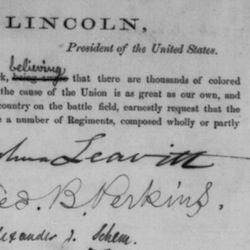 LINCOLN,
President of the United States.
believing
rk, being sure that there are thousands of colored
the cause of the Union is as great as our own, and
country on the battle field, earnestly request that the
e a number of Regiments, composed wholly or partly
shua Leavitt
ed. B. Perkins.
lexander J. Schem.